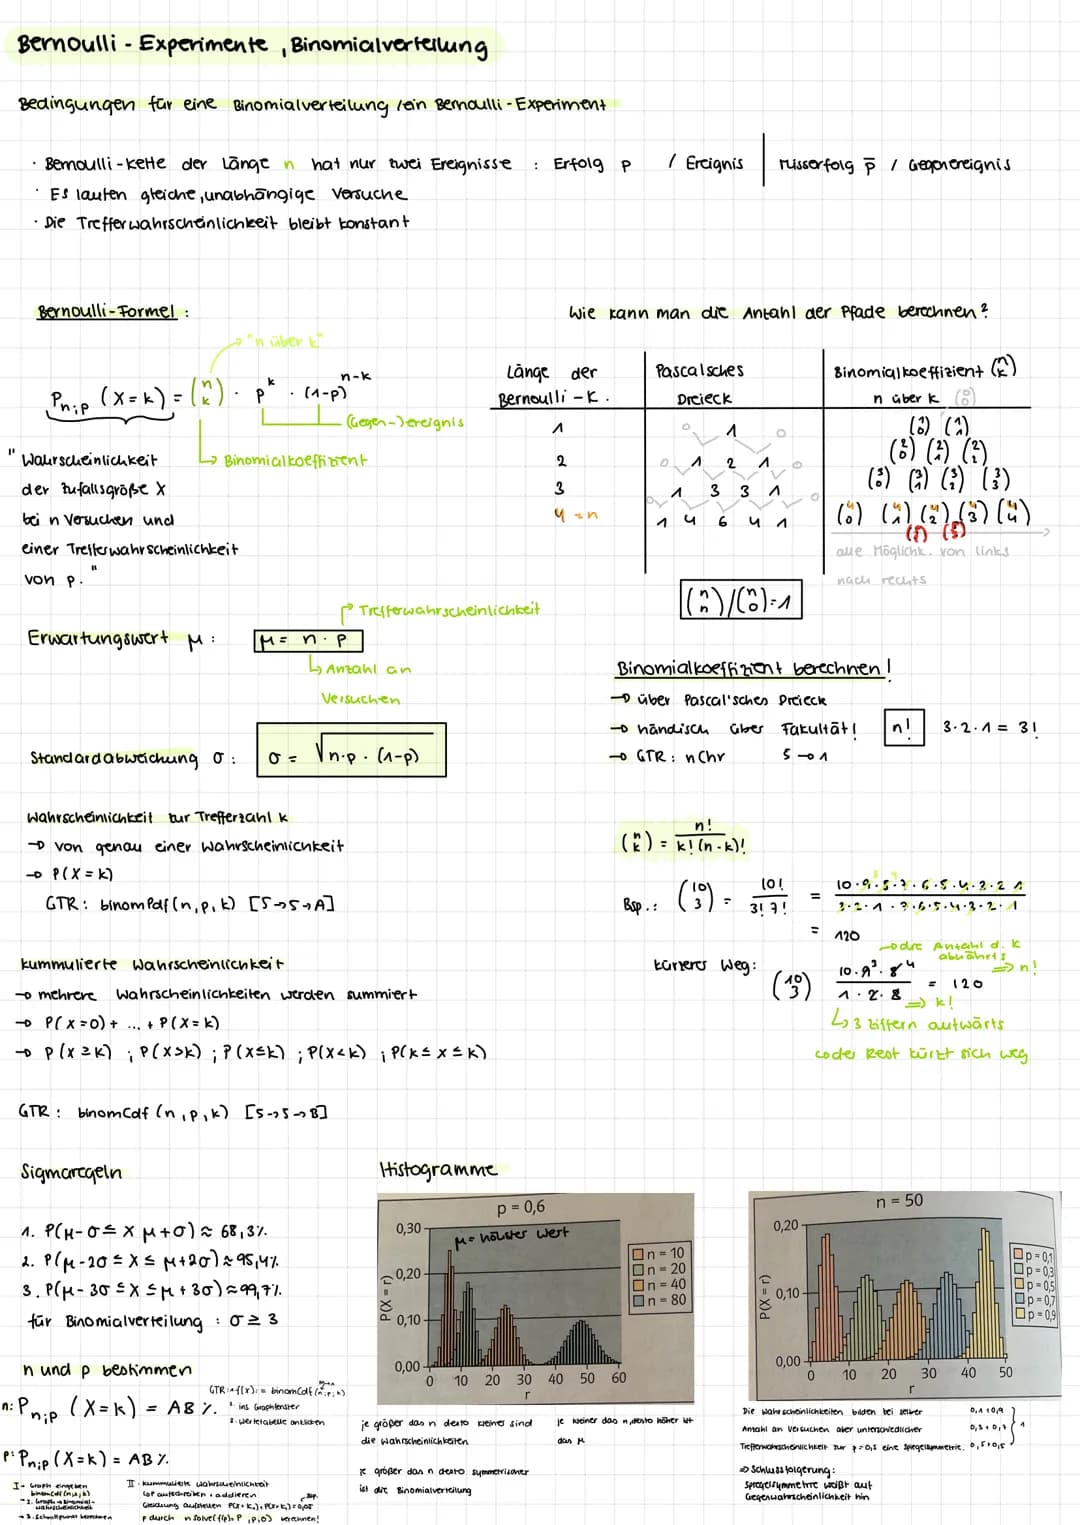 Bernoulli - Experimente , Binomialverteilung
Bedingungen für eine Binomialverteilung / ein Bernoulli - Experiment
· Bernoulli - Kette der Länge n hat nur zwei Ereignisse : Erfolg p / Ereignis | Misserfolg p̄ / Gegenereignis
· Es laufen gleiche, unabhängige Versuche
· Die Trefferwahrscheinlichkeit bleibt konstant
Bernoulli - Formel :
"n über k"
Pn;p (X = k) = (n k) · p^k · (1-p)^n-k
(Gegen-) ereignis
Binomialkoeffizient
" Wahrscheinlichkeit
der Zufallsgröße X
bei n Versuchen und
einer Trefferwahrscheinlichkeit
von p. "
Wie kann man die Anzahl der Pfade berechnen?
Länge der Bernoulli - K. | Pascalsches Dreieck | Binomialkoeffizient (n k) n über k (0 0)
1 | 0 1 0 | (1 0) (1 1)
2 | 0 1 2 1 0 | (2 0) (2 1) (2 2)
3 | 0 1 3 3 1 0 | (3 0) (3 1) (3 2) (3 3)
4 = n | 1 4 6 4 1 | (4 0) (4 1) (4 2) (4 3) (4 4)
alle Möglichk. von links
nach rechts
(n n) / (n 0) = 1
Erwartungswert μ : μ = n · p
Trefferwahrscheinlichkeit
Anzahl an
Versuchen
Standardabweichung σ : σ = √n·p · (1-p)
Binomialkoeffizient berechnen!
→ über Pascal'sches Dreieck
→ händisch über Fakultät! n! 3·2·1 = 3!
→ GTR : nChr 5 → 1
(n k) = n! / k! (n-k)!
Bsp.: (10 3) = 10! / 3! 7! = 10·9·8·7·6·5·4·3·2·1 / 3·2·1·7·6·5·4·3·2·1
= 120
kürzerer Weg: (10 3) 10·9³·8⁴ / 1·2·3 = 120
→ die Anzahl d. k
abwärts
⇒ n!
⇒ k!
↳ 3 Ziffern aufwärts
↪ der Rest kürzt sich weg
Wahrscheinlichkeit zur Trefferzahl k
→ von genau einer Wahrscheinlichkeit
→ P(X = k)
GTR : binomPdf (n, p, k) [5→5→A]
kummulierte Wahrscheinlichkeit
→ mehrere Wahrscheinlichkeiten werden summiert
→ P(X=0) + ... + P(X=k)
→ P(X ≥ k) ; P(X>k) ; P(X≤k) ; P(X<k) ; P(k ≤ X ≤ k)
GTR : binomCdf (n, p, k) [5→5→B]
Sigmaregeln
1. P(μ-σ ≤ X μ+σ) ≈ 68,3%
2. P(μ-2σ ≤ X ≤ μ+2σ) ≈ 95,4%
3. P(μ-3σ ≤ X ≤ μ+3σ) ≈ 99,7%
für Binomialverteilung : σ ≥ 3
n und p bestimmen
n: Pn;p (X = k) = AB %.
GTR: f(x) := binomCdf (n, p, k)
1. ins Graphfenster
2. Wertetabelle anklicken
p: Pn;p (X = k) = AB %.
I - Graph eingeben
binomCdf (n, x, k)
- 2. Graph → Binomial-
wahrscheinlichkeit
→ 3. Schnittpunkt berechnen
II - kummulierte Wahrscheinlichkeit
aufschreiben + addieren
Gleichung aufstellen P(X=k₁) + P(X=k₂) = 0,05
p durch nSolve(f(p)= P, p, 0) berechnen!
Histogramme
p = 0,6
μ = höchster Wert
P(X = r)
0,30
0,20
0,10
0,00
0 10 20 30 40 50 60
r
n = 10
n = 20
n = 40
n = 80
je größer das n desto kleiner sind
die Wahrscheinlichkeiten
je kleiner das n, desto höher ist
das μ
je größer das n desto symmetrischer
ist die Binomialverteilung
n = 50
P(X = r)
0,20
0,10
0,00
0 10 20 30 40 50
r
p = 0,1
p = 0,3
p = 0,5
p = 0,7
p = 0,9
Die Wahrscheinlichkeiten bilden bei selber
Anzahl an Versuchen aber unterschiedlicher
Trefferwahrscheinlichkeit zur p = 0,5 eine Spiegelsymmetrie.
0,1 + 0,9
0,3 + 0,7
0,5 + 0,5
1
⇒ Schlussfolgerung:
Spiegelsymmetrie weißt auf
Gegenwahrscheinlichkeit hin